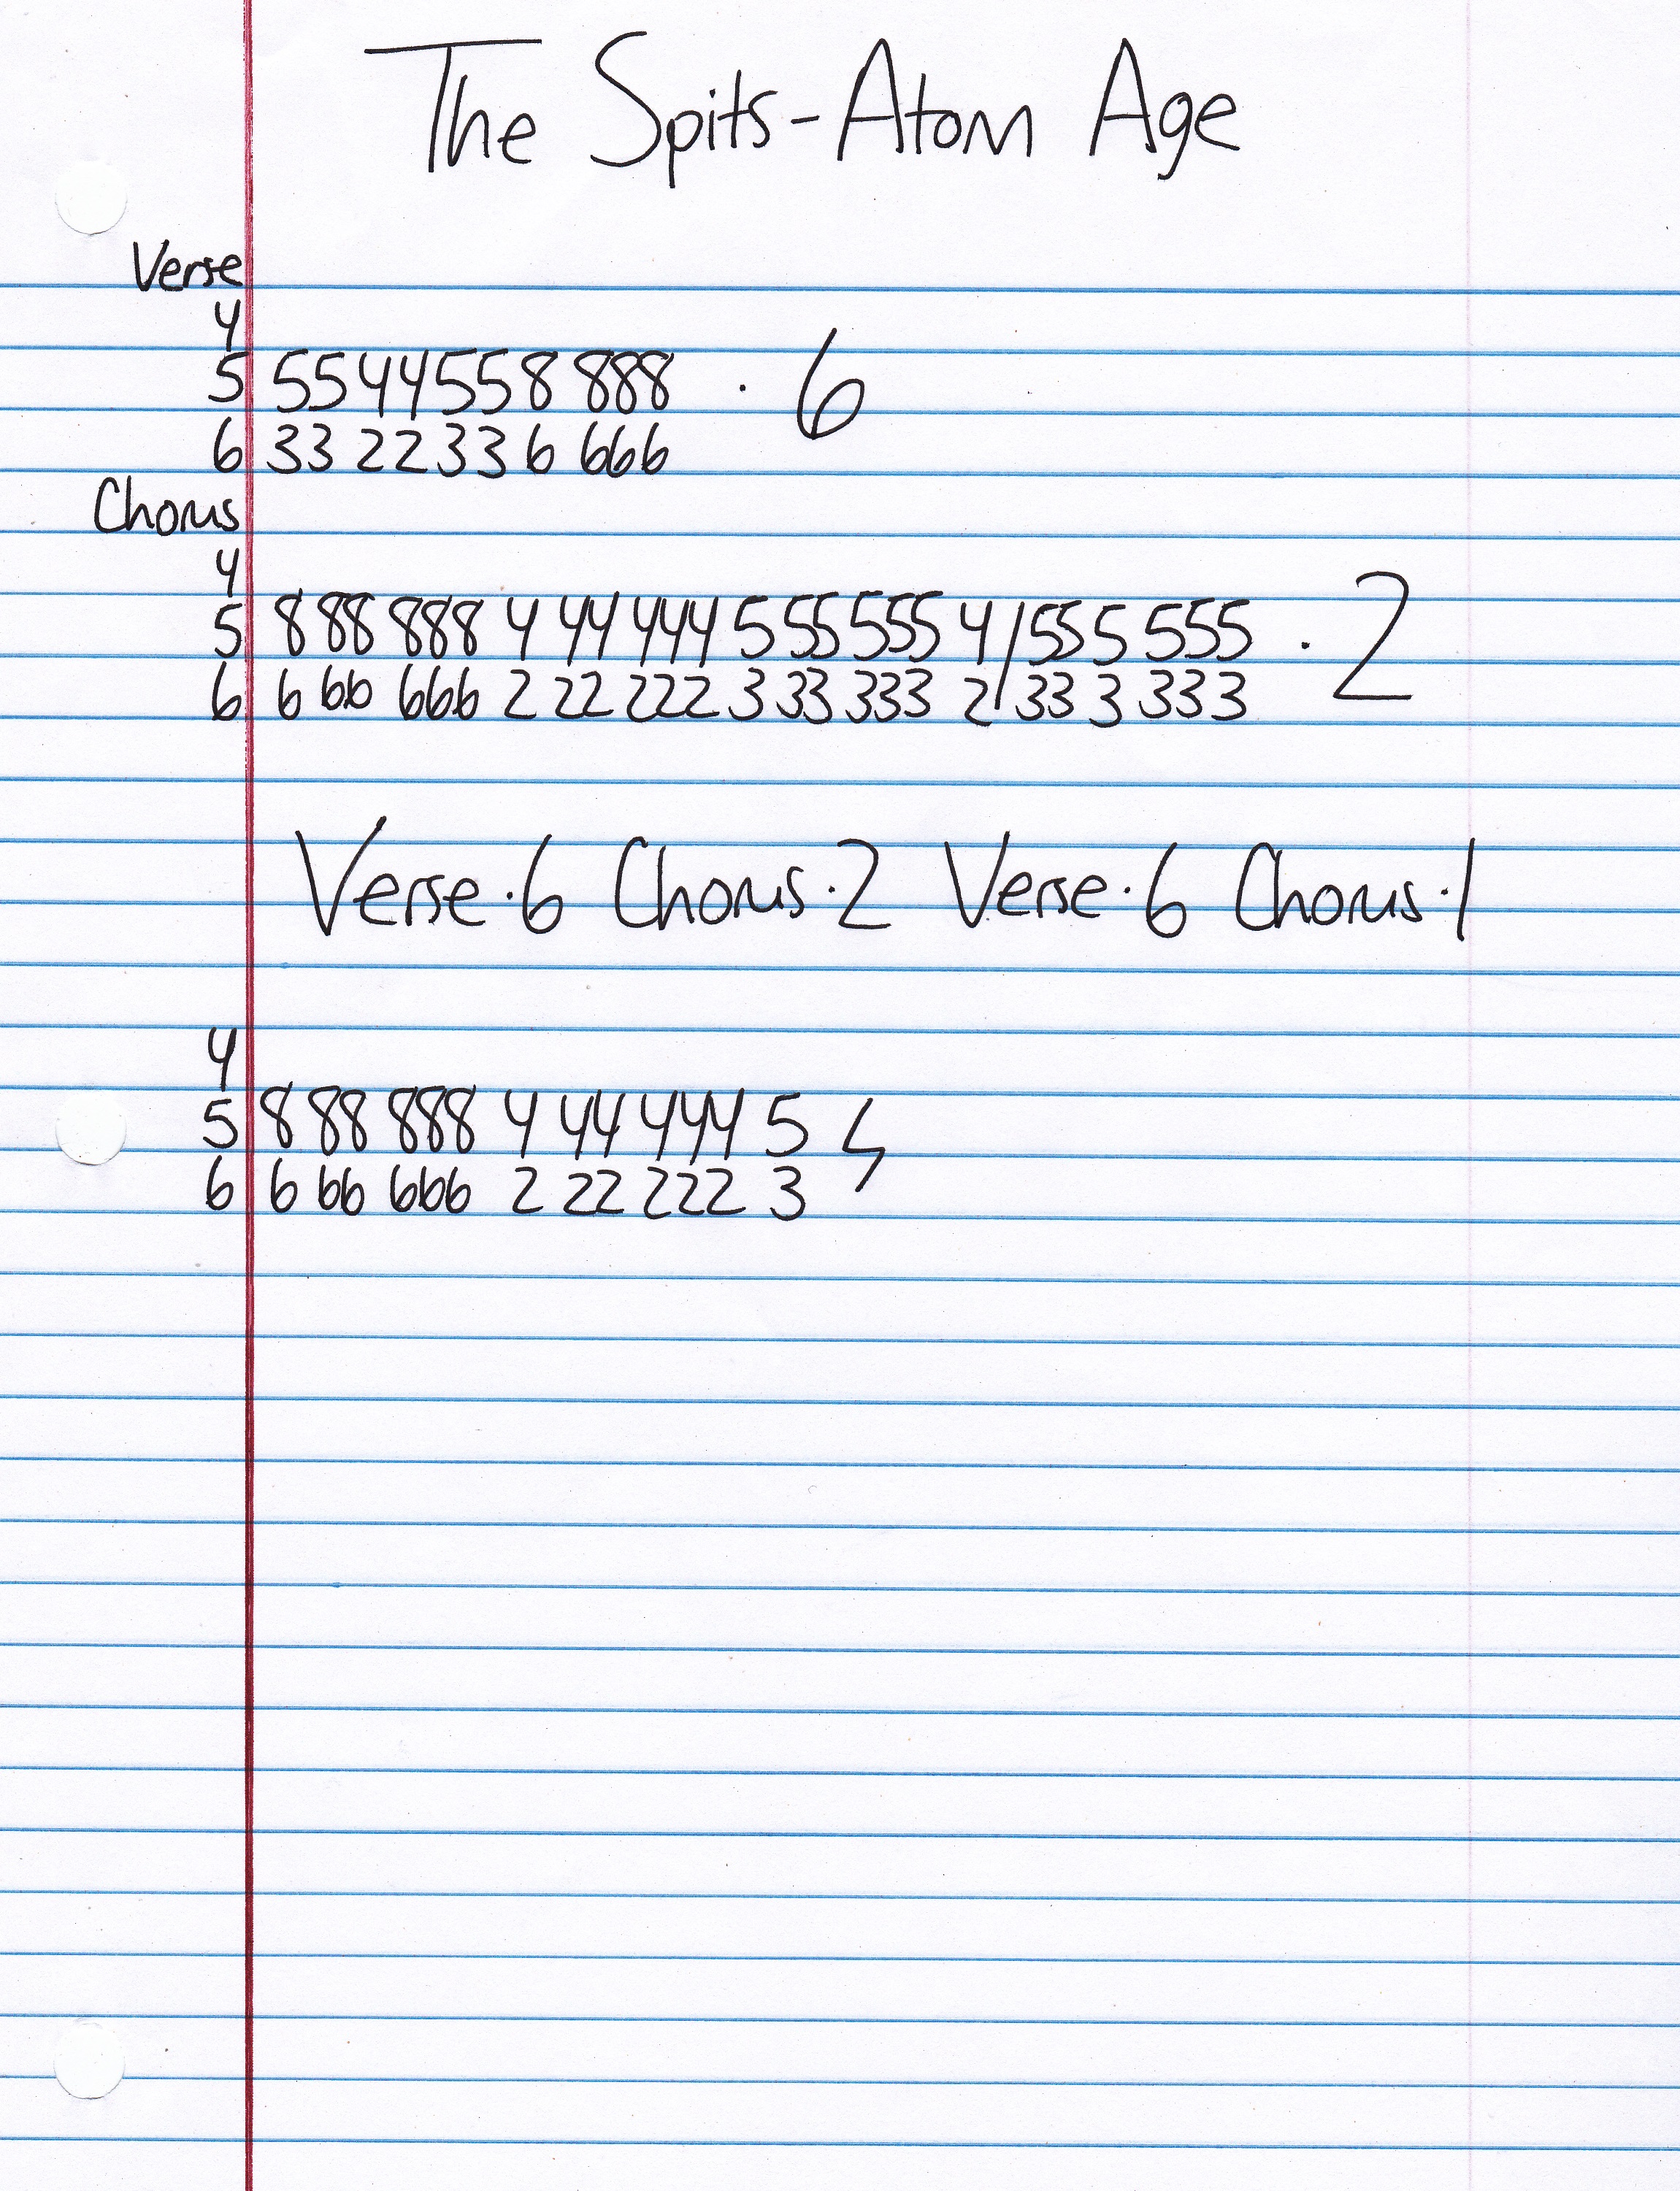 The Spits-Atom Age
Verse
4
5 55 44 55 8 888 · 6
6 33 22 33 6 666
Chorus
4
5 8 88 888 4 44 444 5 55 555 4/55 5 555 · 2
6 6 66 666 2 22 222 3 33 333 2/33 3 333
Verse·6 Chorus·2 Verse·6 Chorus·1
4
5 8 88 888 4 44 444 5
6 6 66 666 2 22 222 3